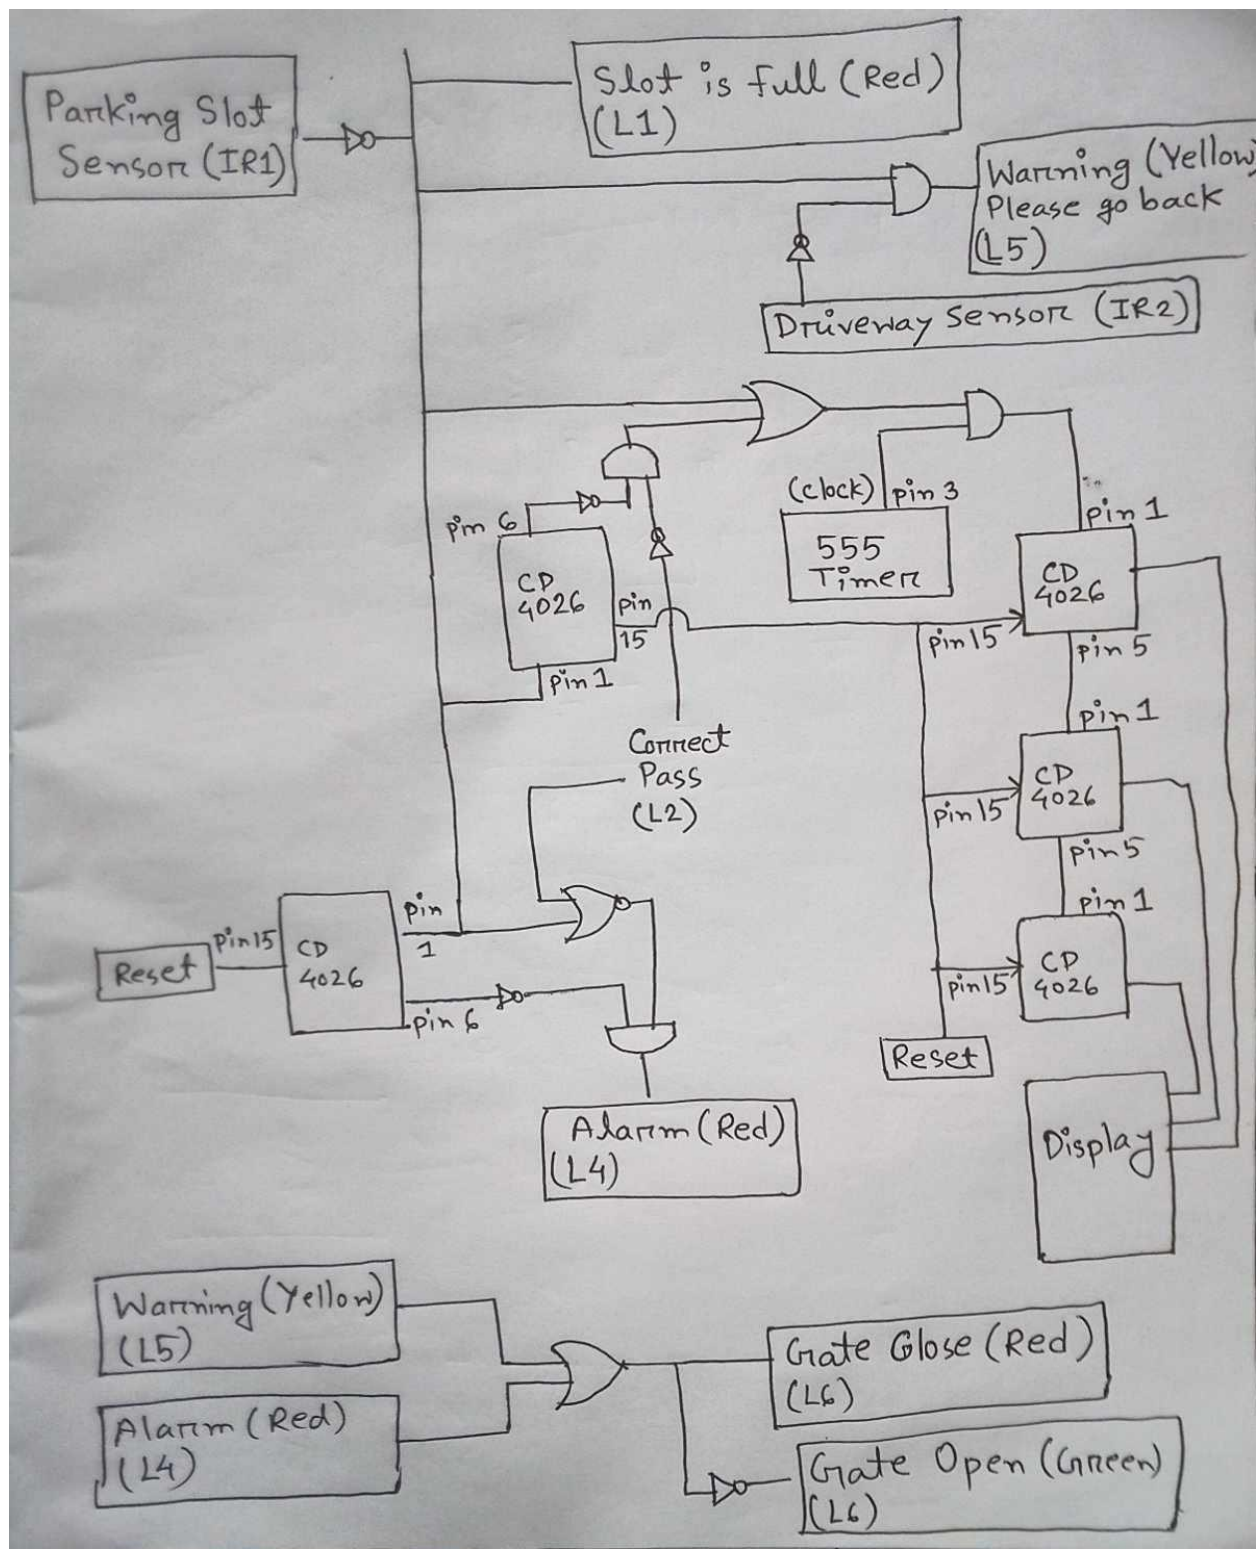 Parking Slot
Sensor (IR1)
Slot is full (Red)
(L1)
Warning (Yellow)
Please go back
(L5)
Driveway Sensor (IR2)
pin 6
CD
4026
pin
15
pin 1
(clock)
pin 3
555
Timer
pin 1
CD
4026
pin 15
pin 5
pin 1
CD
4026
pin 15
pin 5
pin 1
CD
4026
pin 15
Reset
Display
Correct
Pass
(L2)
Reset
pin 15
CD
4026
pin
1
pin 6
Alarm (Red)
(L4)
Warning (Yellow)
(L5)
Alarm (Red)
(L4)
Gate Glose (Red)
(L6)
Gate Open (Green)
(L6)